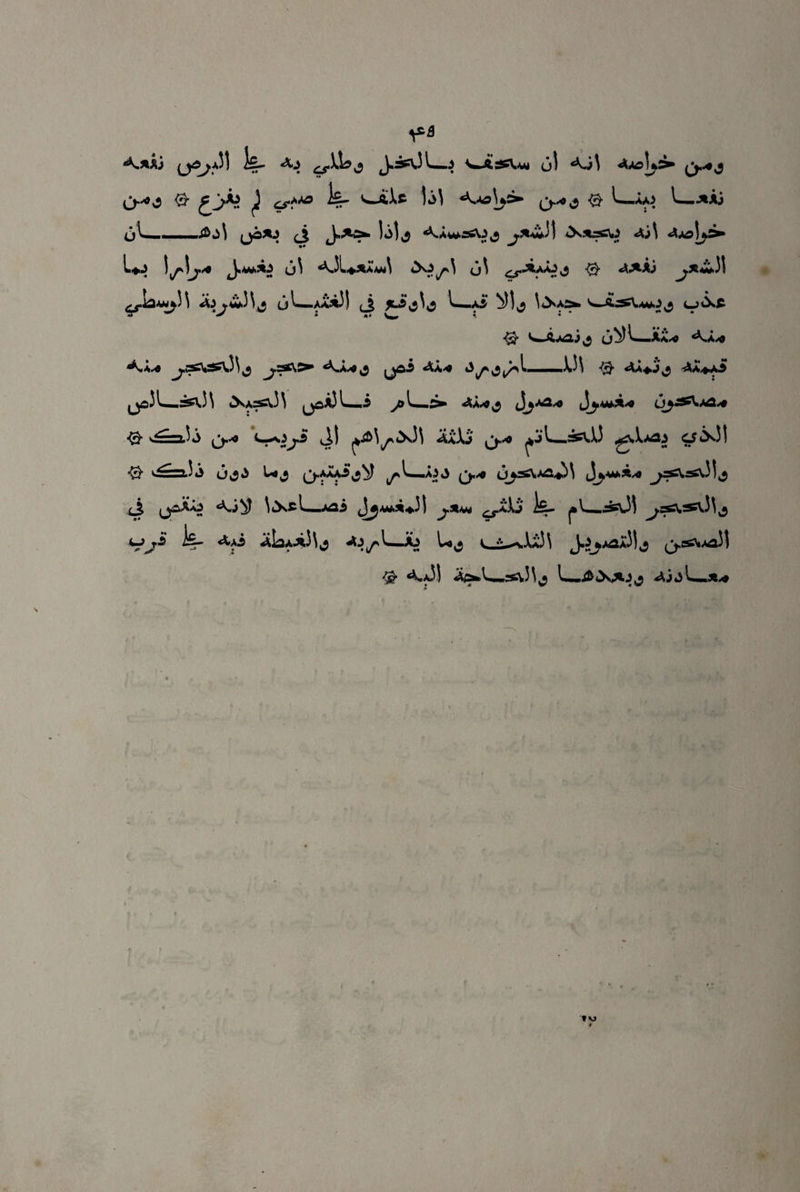 ومن خواصه انه ان سحق بالخل وطلي به على البرص نفعه
نفعا بينا ۞ ومن خواصه اذا علف على صبي لم يفزع ۞ ومن
خواصه انه يجعد الشعر ويحسنه واذا جعل في بعض ادهان
الشعر نفعه ۞ وينبغي ان اريد استعماله ان يغسل مرارا بما
عذب ويسحق جيدا والا قيا واوقع في الغثيان والشربة الوسطي
منه مثقالان ونصف ۞
قيمته وثمنه ۞ اللازورد منه فص ومنه حجر والحجر منه
مصحون مغسول ومنه خام فالفص الجيد الخالص
الذي يصلح للخاتم من ثلثة الدراهم الي قريب من ذلك ۞
والحجر مغسول المصحون من دينار لاوقيتين وما دون ذلك ۞
والحجر الخام على ثلثي سعر المغسول فصاعدا لانه ينقص في
التصحين والتصويل الكلف وما يقاربه والقطعة فيه على قرب
معادنه وبعدها والحاجة اليه ۞